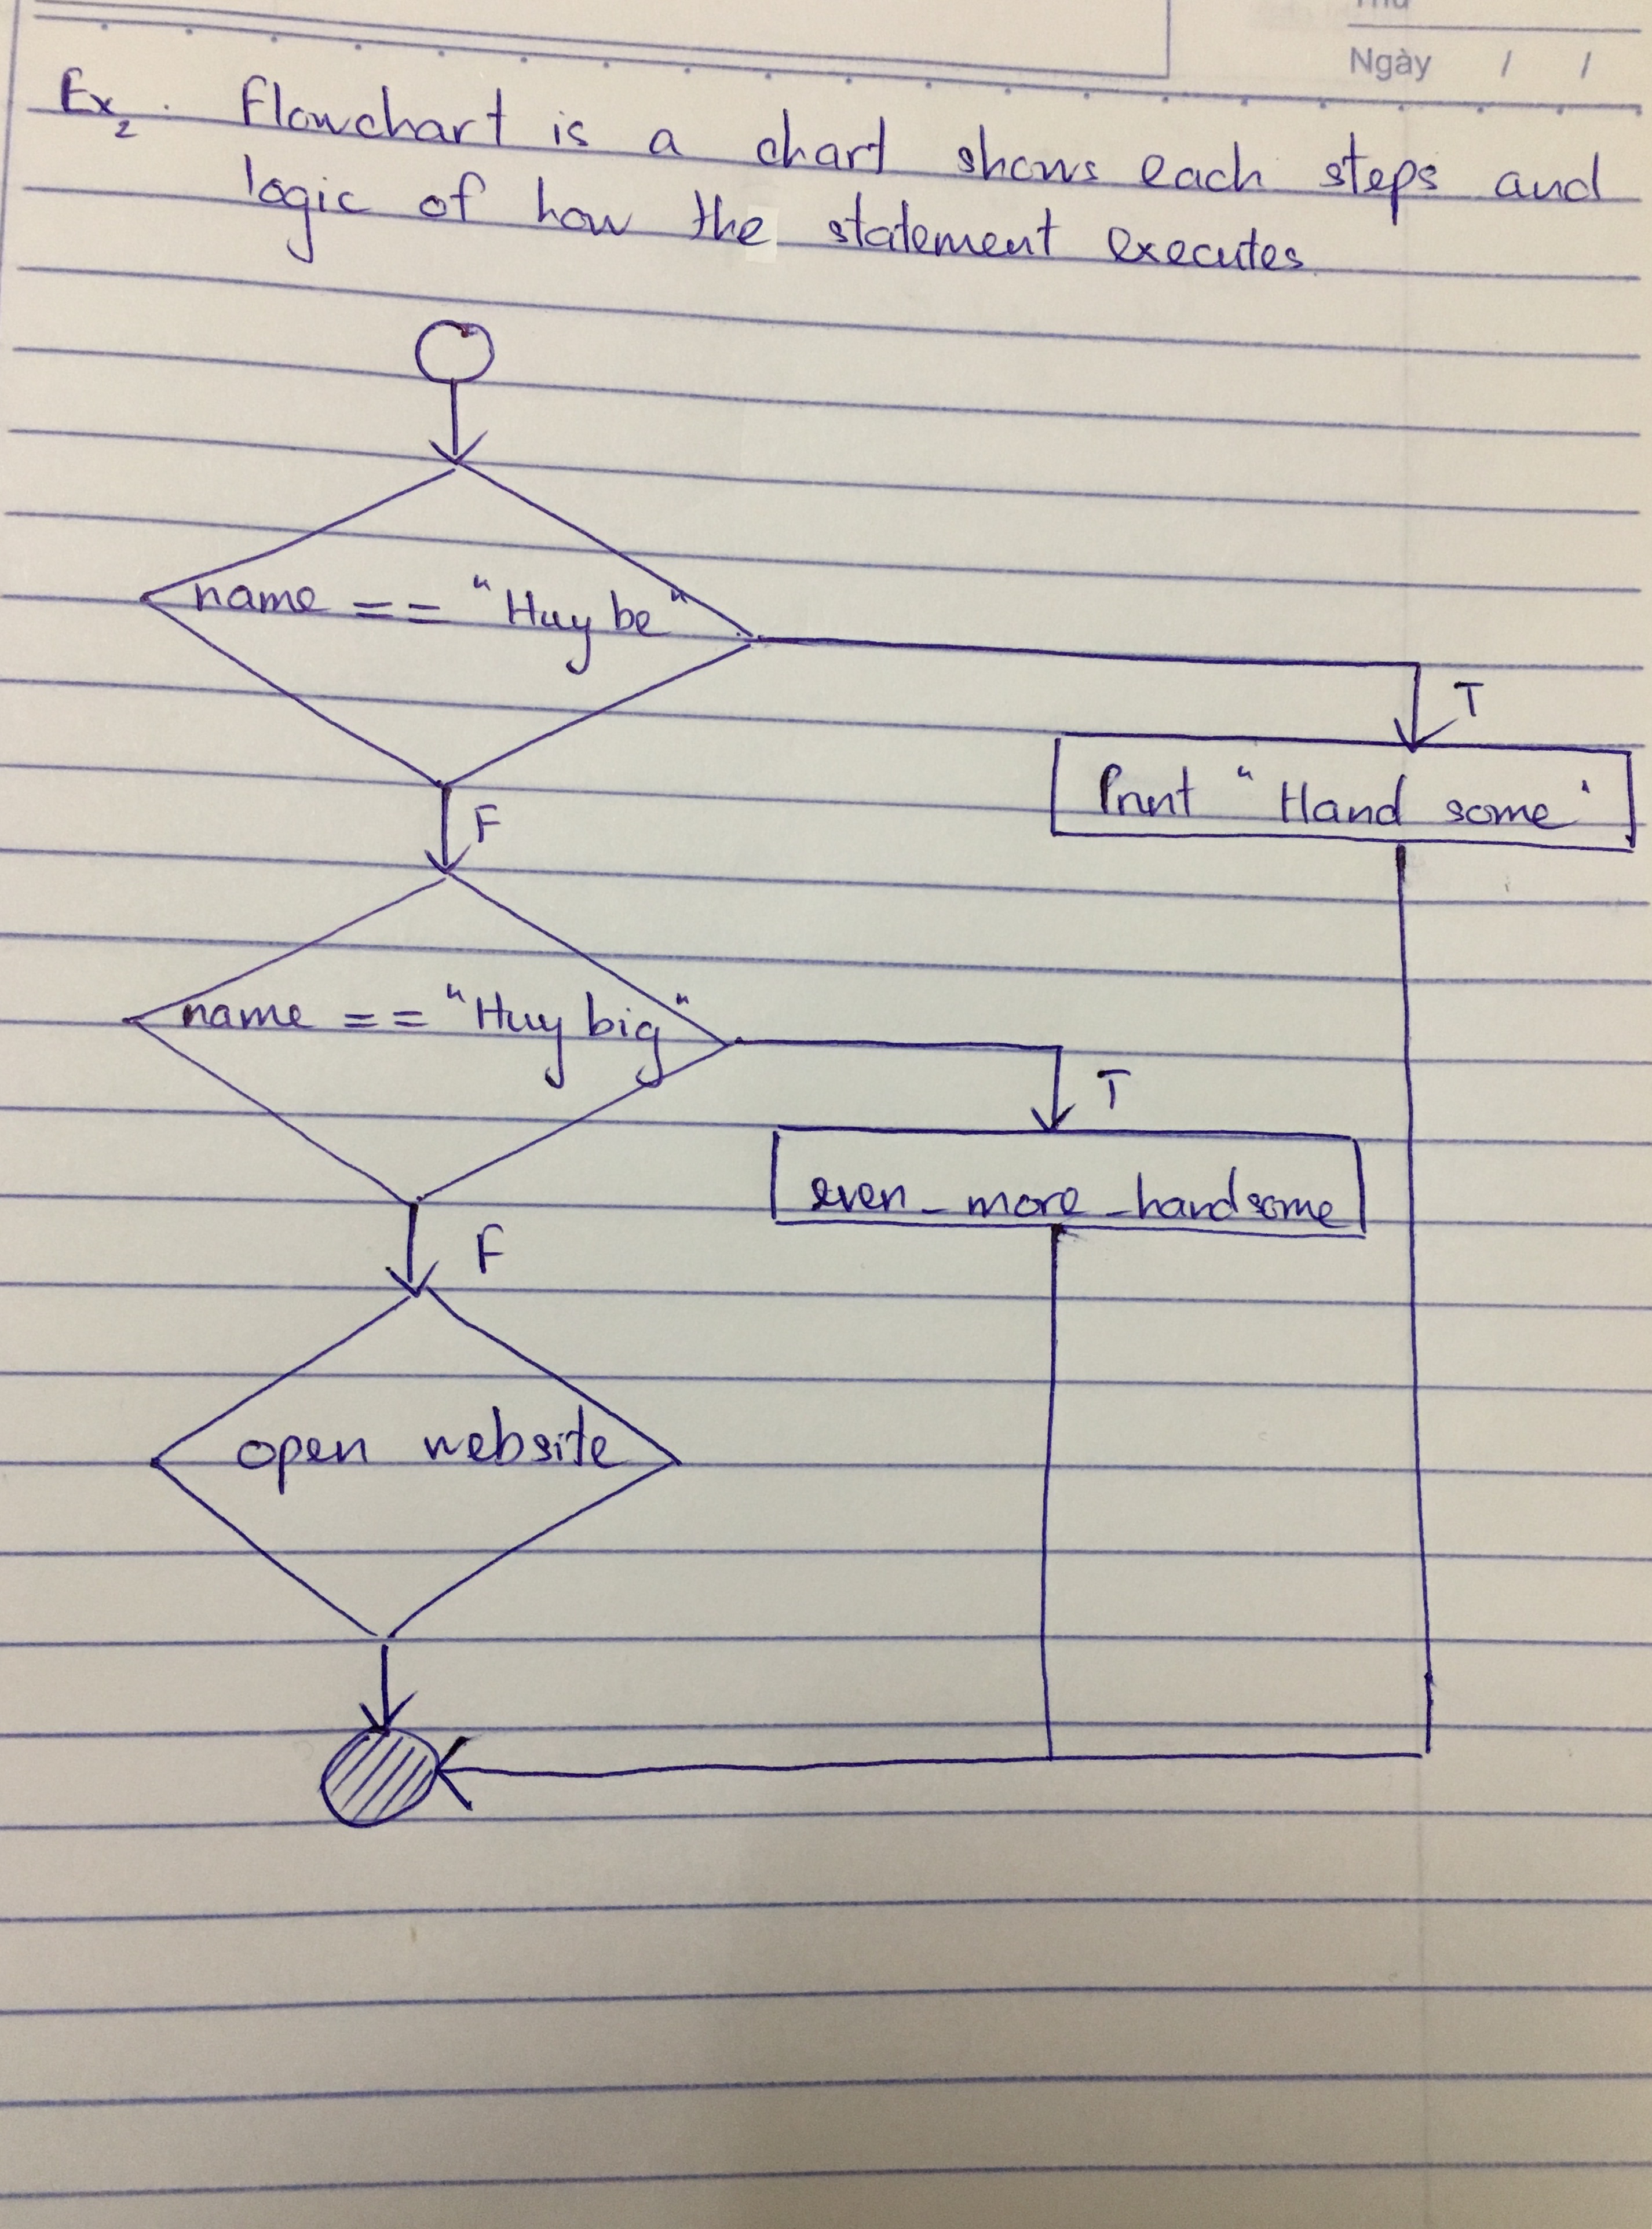 Ngày / /
Ex2. Flowchart is a chart shows each steps and
logic of how the statement executes
name == "Huy be"
T
Print "Hand some"
F
name == "Huy big"
T
even_more_handsome
F
open website